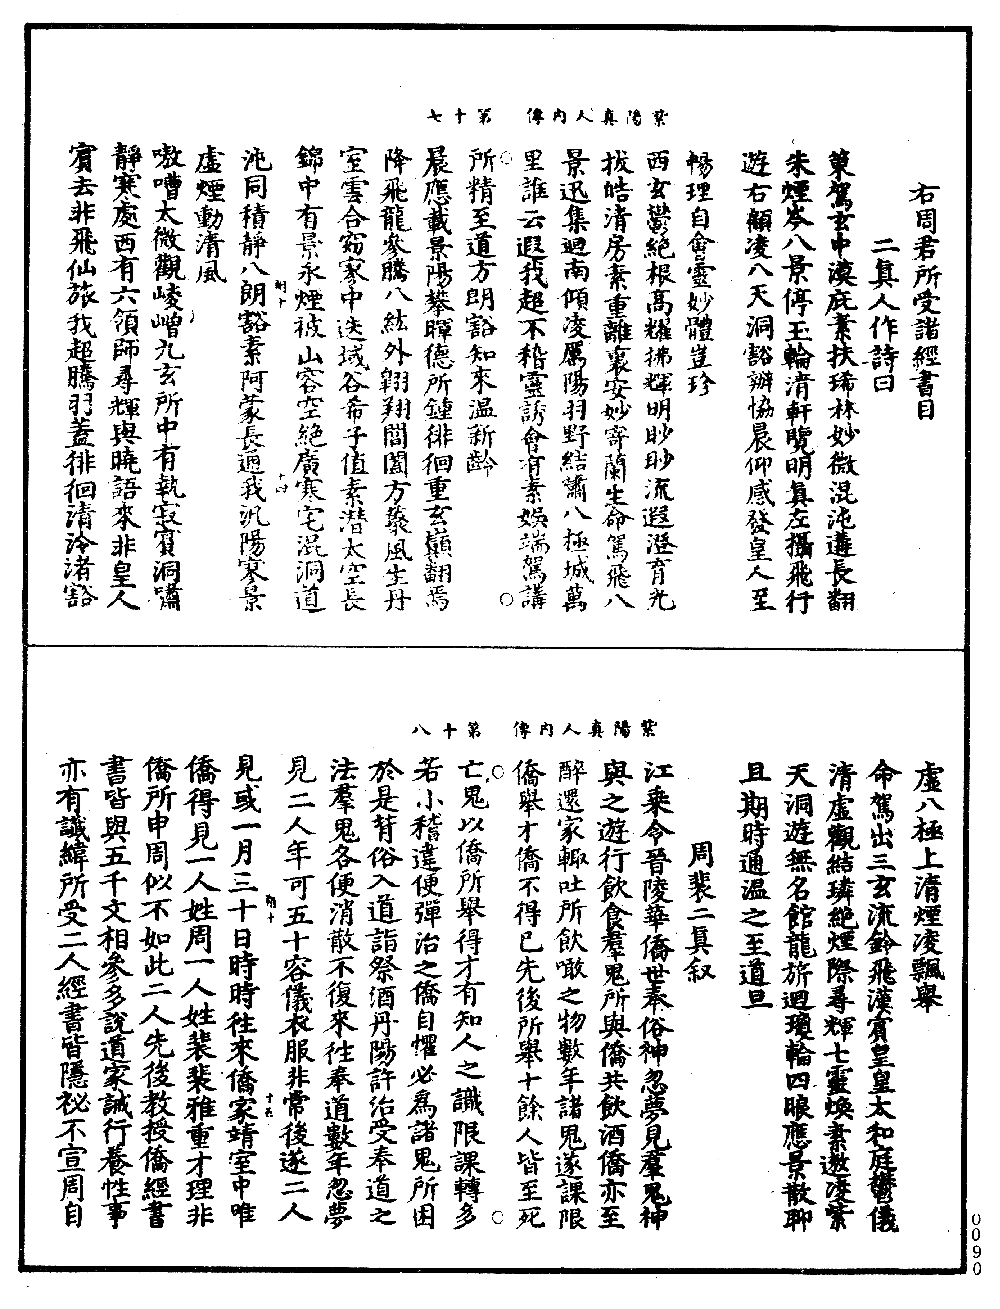 紫陽真人內傳　第十七
右周君所受諸經書目
二真人作詩曰
策駕玄中漠庇素扶珠林妙微混沌遘長翻
朱煙岑八景停玉輪清軒覽明真左攝飛行
遊右顧凌八天洞豁辦恊晨仰感發皇人至
暢理自會靈妙體豈珍
西玄鬱絕根高耀拂輝明眇眇流遐澄育光
拔皓清房素重離裏安妙寄蘭生命駕飛八
景迅集迴南傾凌厲陽羽野結嘯八極城萬
里誰云遐我超不稽靈誘會有素娛端駕講
所精至道方朗豁知來溫新齡
晨應載景陽攀暉德所鍾徘徊重玄巔翻焉
降飛龍參騰八紘外翱翔閶闔方藂風生丹
室雲合窈冢中迭域谷希子值素潛太空長
錦中有景永煙被山容空絕廣寒宅混洞道
沌同積靜八朗豁素阿蒙長迴我汎陽寒景
虛煙動清風
嗷嘈太微觀崚嶒九玄所中有執寂賓洞嘯
靜寒處西有六領師尋輝與曉語來非皇人
賓去非飛仙旅我超騰羽蓋徘徊清泠渚豁
明十
十四
紫陽真人內傳　第十八
虛八極上清煙凌飄舉
命駕出三玄流鈴飛漢賓皇皇太和庭鬱儀
清虛觀結璘絕煙際尋輝七靈煥素遨凌紫
天洞遊無名館龍旂迴瓊輪四眼應景散聊
且期時通溫之至道旦
周裴二真叙
江乘令晉陵華僑世奉俗神忽夢見羣鬼神
與之遊行飲食羣鬼所與僑共飲酒僑亦至
醉還家輙吐所飲噉之物數年諸鬼遂課限
僑舉才僑不得已先後所舉十餘人皆至死
亡鬼以僑所舉得才有知人之識限課轉多
若小稽違便彈治之僑自懼必為諸鬼所困
於是背俗入道詣祭酒丹陽許治受奉道之
法羣鬼各便消散不復來往奉道數年忽夢
見二人年可五十容儀衣服非常後遂二人
見或一月三十日時時往來僑家靖室中唯
僑得見一人姓周一人姓裴裴雅重才理非
僑所申周似不如此二人先後教授僑經書
書皆與五千文相參多說道家誡行養性事
亦有讖緯所受二人經書皆隱祕不宣周自
明十
十五
0090